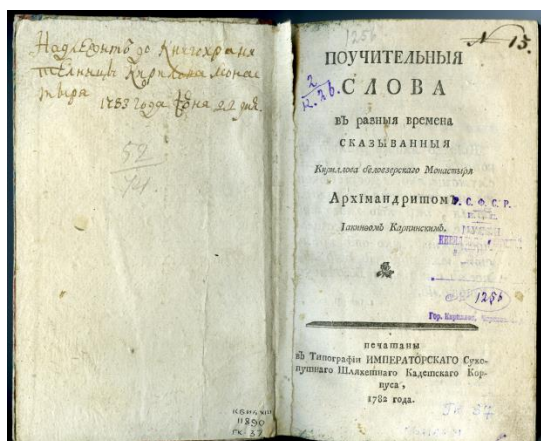 Надлежитъ до Книгохрани
тельницы Кирилова Монас
тыря
1783 года Iюня 22 дня.
52
74
КБИАХМ
11890
РК 37
1256
N 15.
2
К. 26.
ПОУЧИТЕЛЬНЫЯ
СЛОВА
въ разныя времена
СКАЗЫВАННЫЯ
Кириллова бѣлоезерскаго Монастыря
Архїмандритомъ
Іакинѳомъ Карпинскимъ.
Р. С. Ф. С. Р.
МУЗЕЙ
1256
Гор. Кириллов,
печатаны
въ Типографїи ИМПЕРАТОРСКАГО Сухо-
путнаго Шляхетнаго Кадетскаго Кор-
пуса,
1782 года.
37